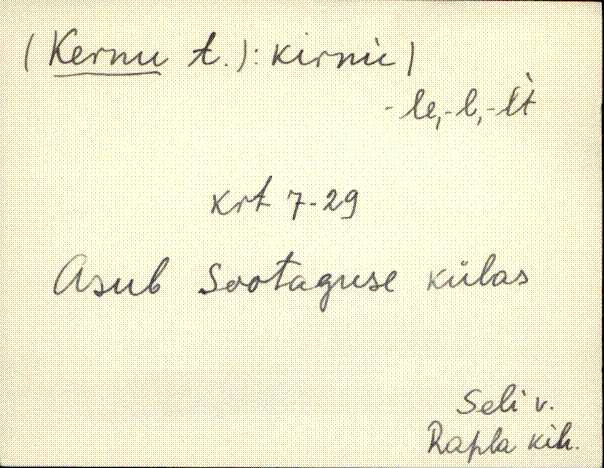 (Kernu t.): kirnù|
-le, -l, -l̀t
krt 7-29
Asub Sootaguse külas
Seli v.
Rapla kih.